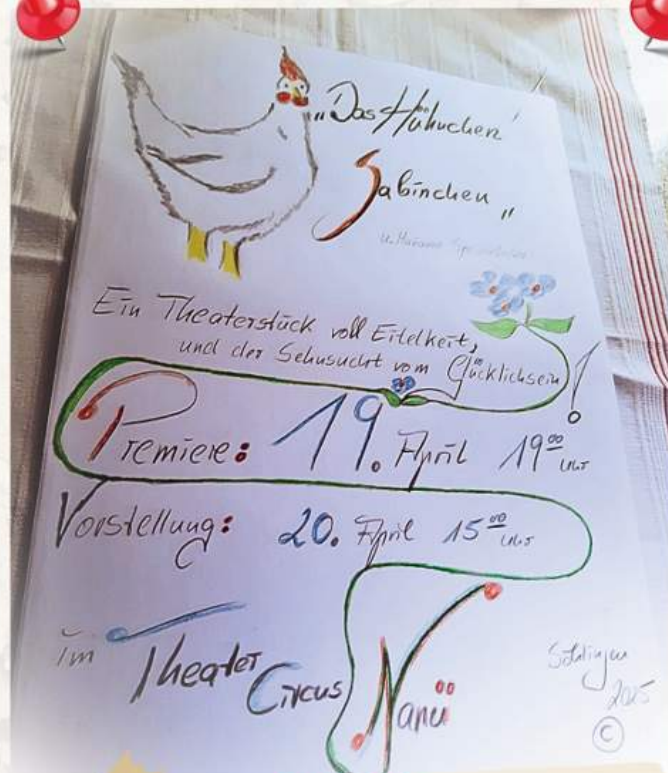 „Das Hühnchen
Sabinchen"
Ein Theaterstück voll Eitelkeit,
und der Sehnsucht vom Glücklichsein!
Premiere: 19. April 19⁰⁰ Uhr
Vorstellung: 20. April 15⁰⁰ Uhr
im Theater Circus Nanü
2025
©